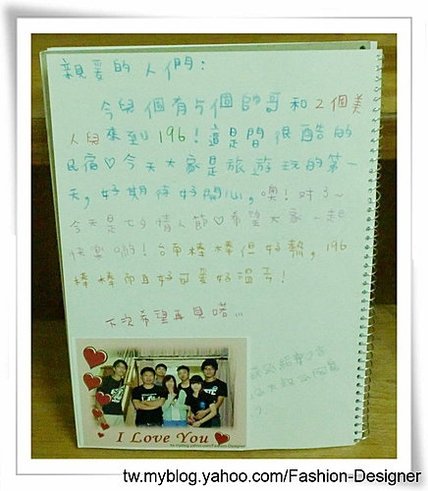 親愛的人們：
今兒個有5個帥哥和2個美
人兒來到196！這是間很酷的
民宿♡今天大家是旅遊玩的第一
天，好期待好開心，噢！對了~
今天是七夕情人節♡希望大家一起
快樂喲！台南棒棒但好熱，196
棒棒而且好可愛好溫馨！
下次希望再見喏...
I Love You
tw.myblog.yahoo.com/Fashion-Designer
tw.myblog.yahoo.com/Fashion-Designer